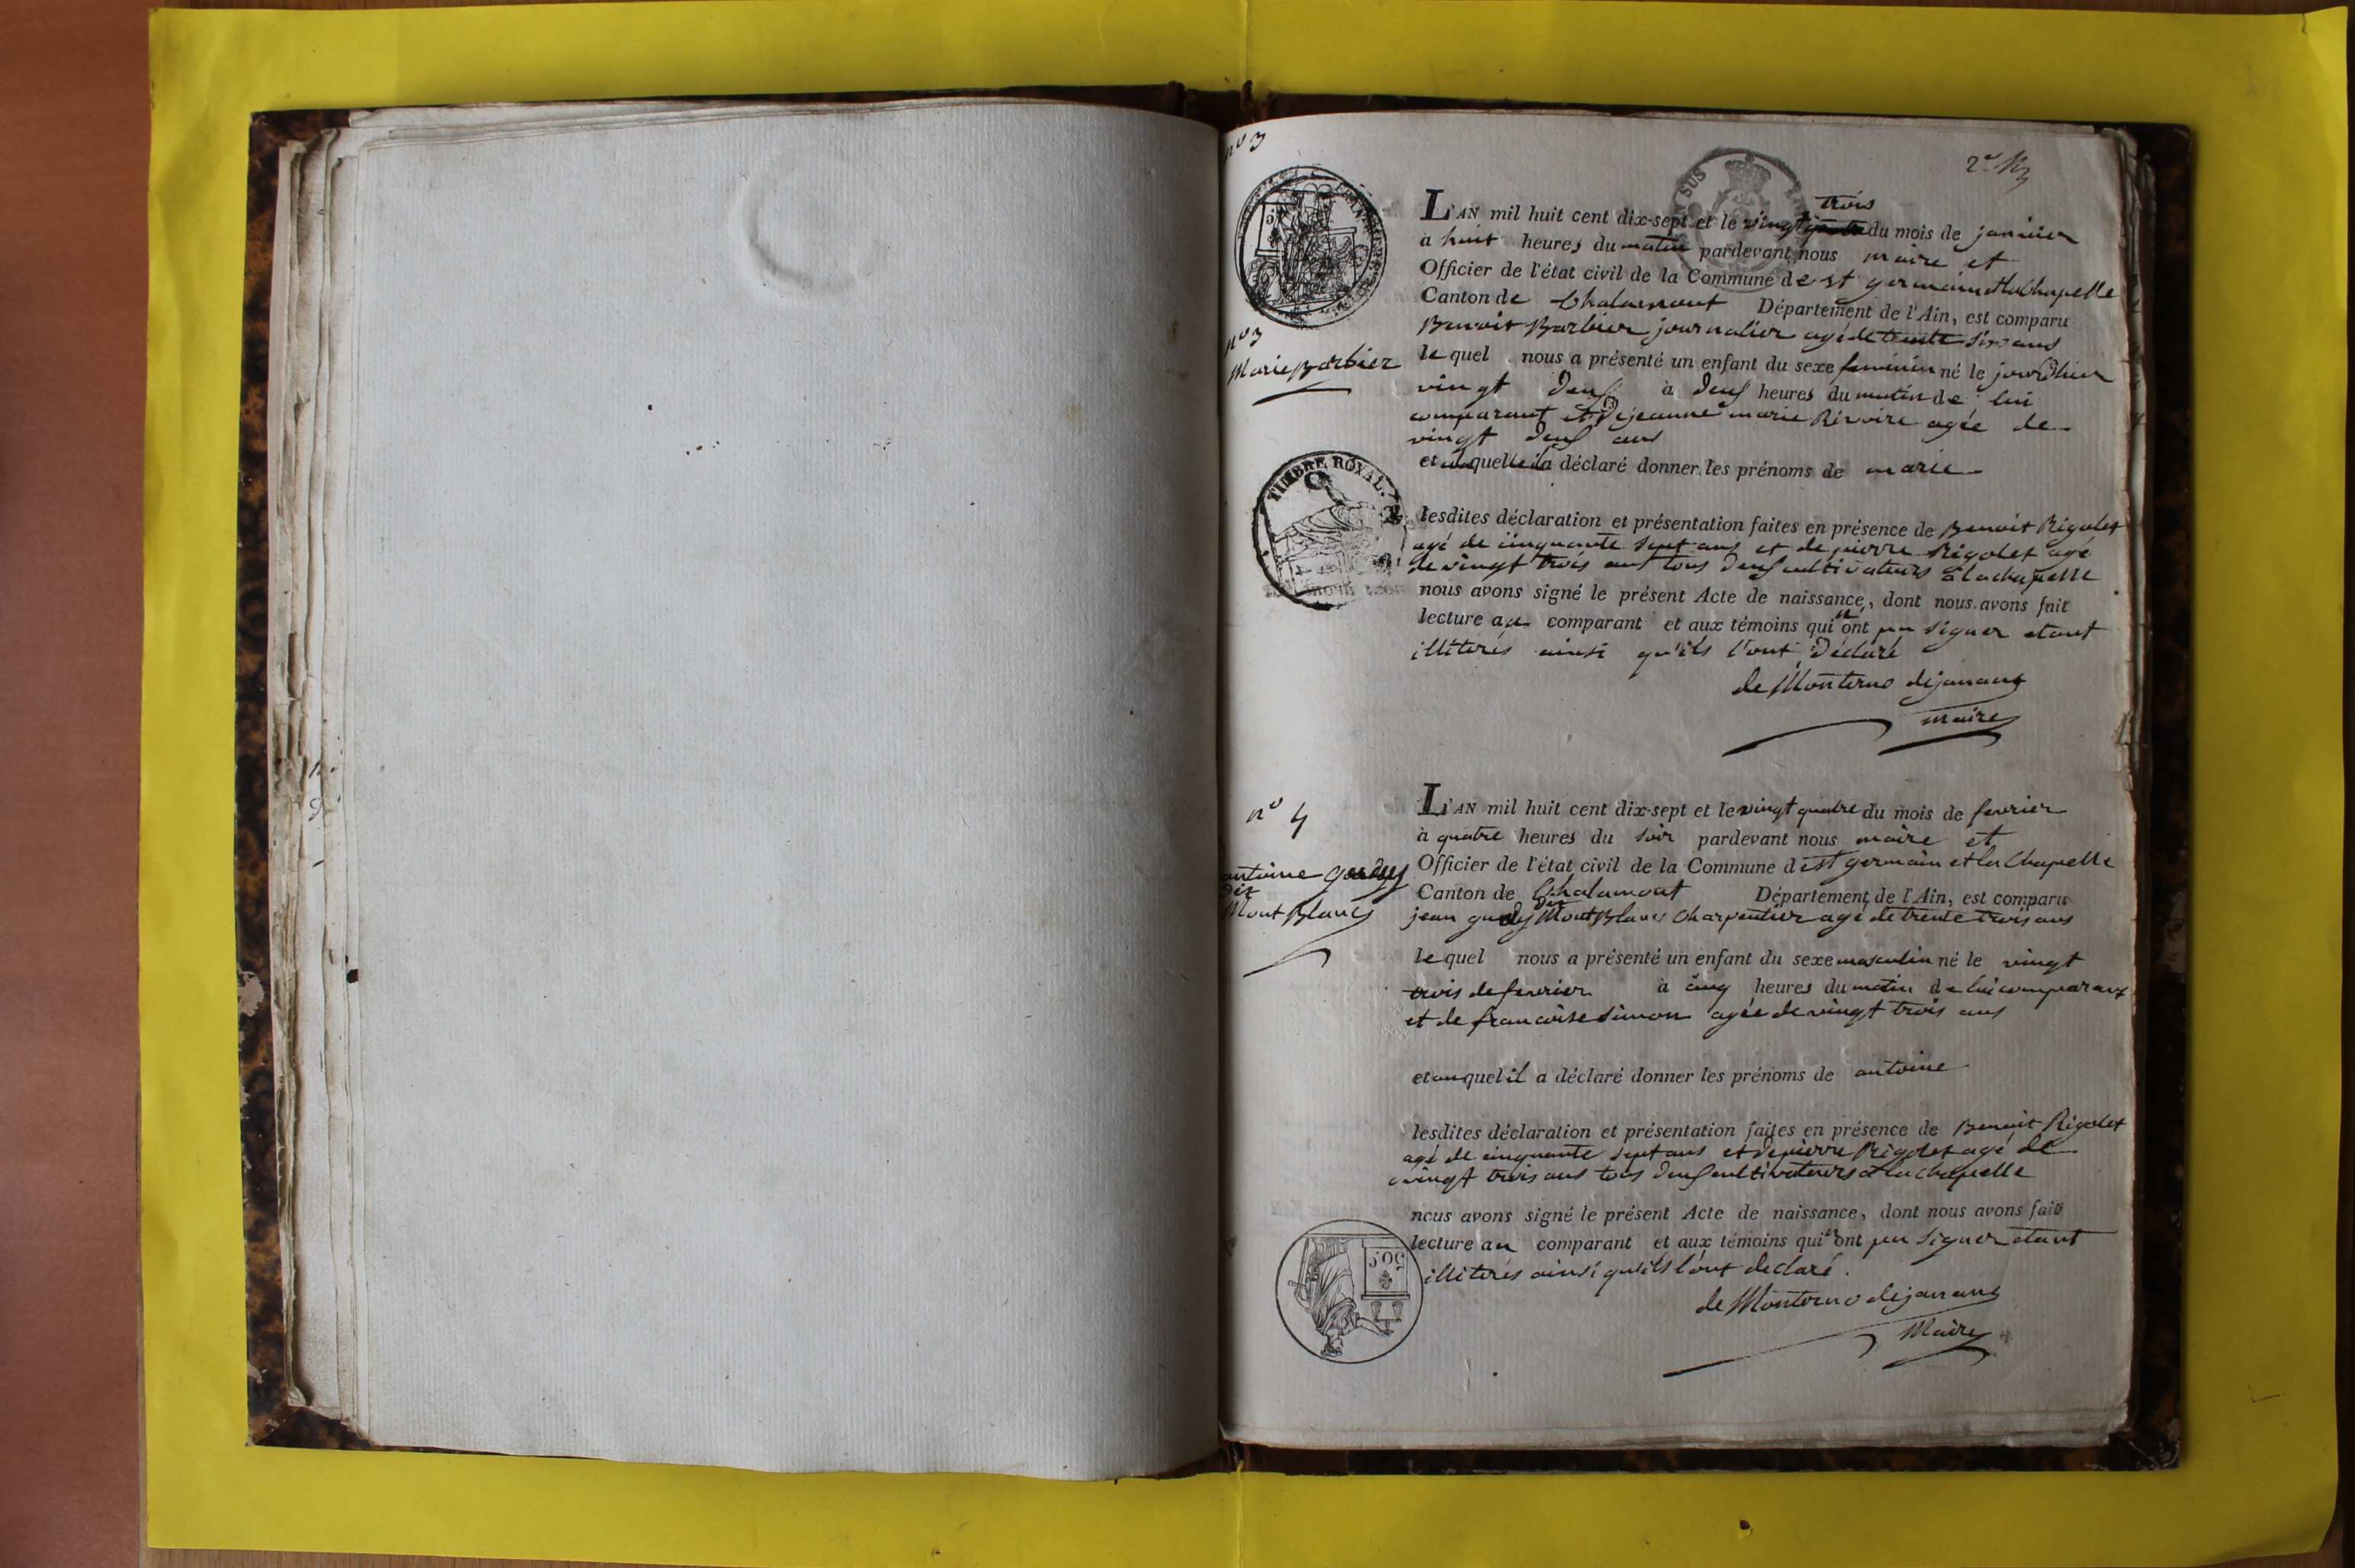 n° 3
trois
L'AN mil huit cent dix-sept et le vingt du mois de janvier
à huit heures du matin pardevant nous maire et
Officier de l'état civil de la Commune de st germain et la Chapelle
Canton de Chalamont Département de l'Ain, est comparu
Benoit Barbier journalier agé de trente six ans
n° 3
Marie Barbier
le quel nous a présenté un enfant du sexe feminin né le jour d'hier
vingt deux à deux heures du matin de lui
comparant et de jeanne marie agée de
vingt deux ans
et à laquelle il a déclaré donner les prénoms de marie
TIMBRE ROYAL.
lesdites déclaration et présentation faites en présence de Benoit Rigolet
agé de cinquante sept ans et de pierre Rigolet agé
de vingt trois ans tous deux cultivateurs à la chapelle
nous avons signé le présent Acte de naissance, dont nous avons fait
lecture au comparant et aux témoins qui n'ont pu signer etant
illiterés ainsi qu'ils l'ont déclaré
de Monterno dejanang
maire
n° 4
L'AN mil huit cent dix-sept et le vingt quatre du mois de fevrier
à quatre heures du soir pardevant nous maire et
Officier de l'état civil de la Commune de st germain et la Chapelle
antoine
dit
Mont Blanc
Canton de Chalamont Département de l'Ain, est comparu
jean dit Mont Blanc Charpentier agé de trente trois ans
le quel nous a présenté un enfant du sexe masculin né le vingt
trois de fevrier à cinq heures du matin de lui comparant
et de francoise simon agée de vingt trois ans
et auquel il a déclaré donner les prénoms de antoine
lesdites déclaration et présentation faites en présence de Benoit Rigolet
agé de cinquante sept ans et de pierre Rigolet agé de
vingt trois ans tous deux cultivateurs à la chapelle
nous avons signé le présent Acte de naissance, dont nous avons fait
lecture au comparant et aux témoins qui n'ont pu signer etant
illiterés ainsi qu'ils l'ont declaré.
50c
de Monterno dejanang
Maire